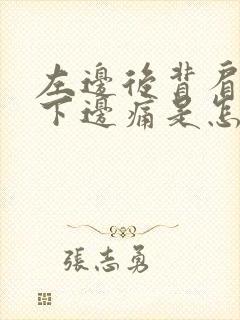 左邊後背肩
下邊痛是怎
張志勇